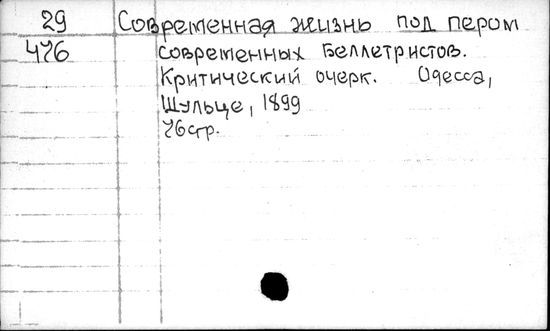 29 Современная жизнь под пером
476 современных беллетристов.
Критический очерк. Одесса,
Шульце, 1899
76стр.